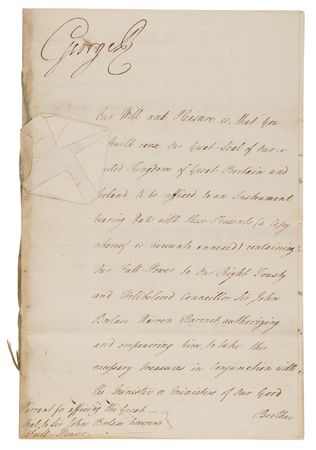 George R
Our Will and Pleasure is, that You
cause our Great Seal of Our
Kingdom of Great Britain and
Ireland to be affixed to an Instrument
bearing Date with these Presents (a Copy
whereof is hereunto annexed) containing
Our Full Power to Our Right Trusty
and Wellbeloved Councillor Sir John
Borlase Warren Baronet, authorizing
and empowering him to take the
necessary Measures in Conjunction with
the Minister or Ministers of Our Good
Brother
Warrant for affixing the Great
Seal to Sir John Borlase Warren's
Full Power